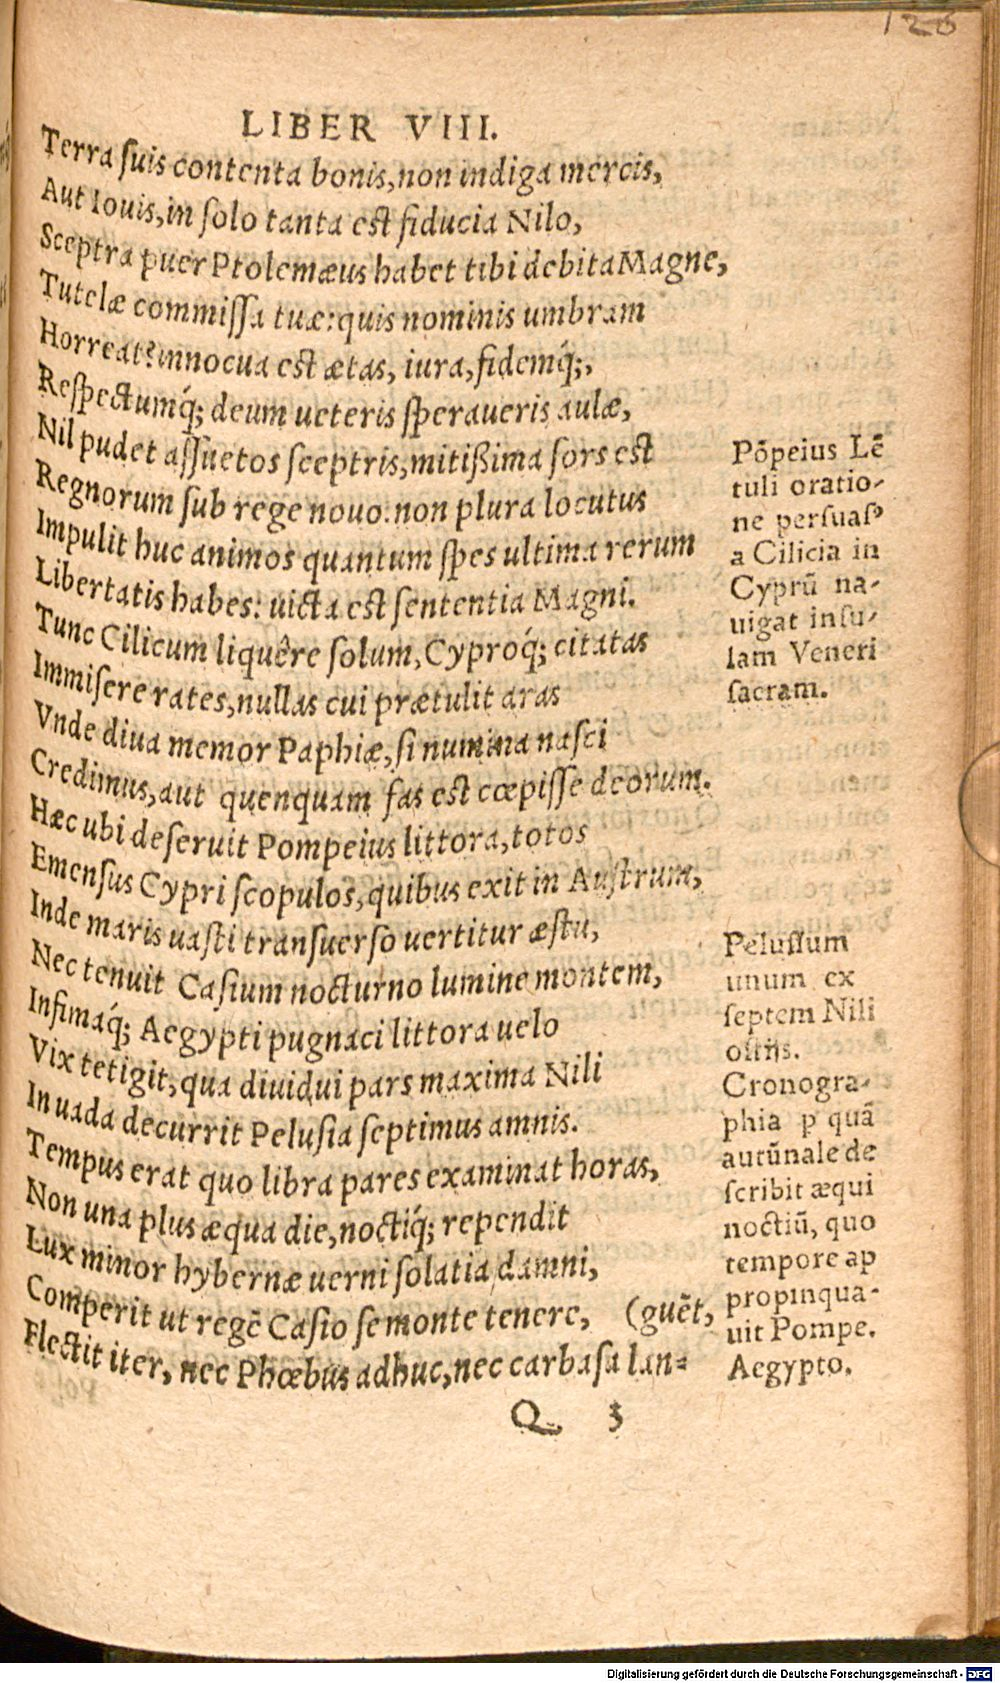 123
LIBER VIII.
Terra ſuis contenta bonis, non indiga mercis,
Aut Iouis, in ſolo tanta eſt fiducia Nilo,
Sceptra puer Ptolemæus habet tibi debita Magne,
Tutelæ commiſſa tuæ: quis nominis umbram
Horreat? innocua eſt ætas, iura, fidemq́;,
Reſpectumq́; deum ueteris ſperaueris aulæ,
Nil pudet aſſuetos ſceptris, mitißima ſors eſt
Regnorum ſub rege nouo. non plura locutus
Impulit huc animos quantum ſpes ultima rerum
Libertatis habes: uicta eſt ſententia Magni.
Tunc Cilicum liquêre ſolum, Cyproq́; citatas
Immiſere rates, nullas cui prætulit aras
Vnde diua memor Paphiæ, ſi numina naſci
Credimus, aut quenquam fas eſt cœpiſſe deorum.
Hæc ubi deſeruit Pompeius littora, totos
Emenſus Cypri ſcopulos, quibus exit in Auſtrum,
Inde maris uaſti tranſuerſo uertitur æſtu,
Nec tenuit Caſium nocturno lumine montem,
Infimaq́; Aegypti pugnaci littora uelo
Vix tetigit, qua diuidui pars maxima Nili
In uada decurrit Peluſia ſeptimus amnis.
Tempus erat quo libra pares examinat horas,
Non una plus æqua die, noctiq́; rependit
Lux minor hybernæ uerni ſolatia damni,
Comperit ut regē Caſio ſe monte tenere, (guēt,
Flectit iter, nec Phœbus adhuc, nec carbaſa lan=
Q 3
Pōpeius Lē
tuli oratio-
ne perſuaſꝰ
a Cilicia in
Cyprū na-
uigat inſu-
lam Veneri
ſacram.
Peluſium
unum ex
ſeptem Nili
oſtijs.
Cronogra-
phia p quā
autūnale de
ſcribit æqui
noctiū, quo
tempore ap
propinqua-
uit Pompe.
Aegypto.
Digitalisierung gefördert durch die Deutsche Forschungsgemeinschaft - DFG